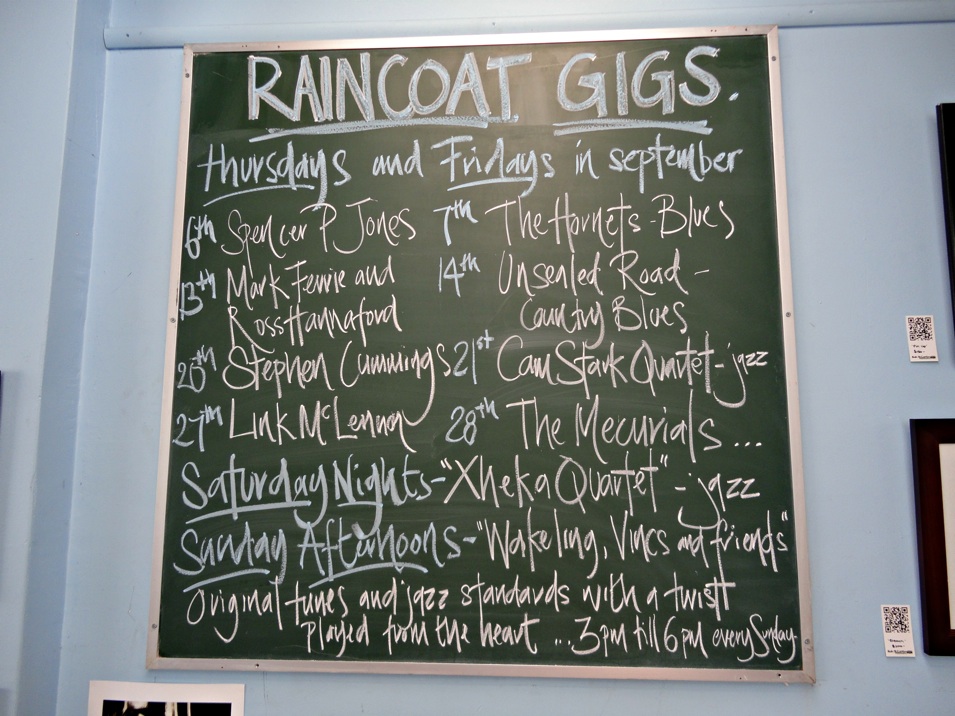 RAINCOAT GIGS.
thursdays and Fridays in september
6th Spencer P Jones 7th The Hornets - Blues
13th Mark Ferrie and 14th Unsealed Road -
Ross Hannaford Country Blues
20th Stephen Cummings 21st Cam Stark Quartet - jazz
27th Link McLennon 28th The Mecurials ...
Saturday Nights - "Xheka Quartet" - jazz
Sunday Afternoons - "Wakeling, Vincs and friends"
Original tunes and jazz standards with a twist
played from the heart ... 3pm till 6pm every Sunday.